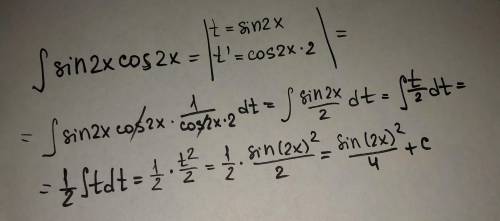 ∫ sin2x cos2x = | t = sin2x
t' = cos2x·2 | =
= ∫ sin2x cos2x · 1/(cos2x·2) dt = ∫ sin2x/2 dt = ∫ t/2 dt =
= 1/2 ∫ t dt = 1/2 · t²/2 = 1/2 · sin(2x)²/2 = sin(2x)²/4 + c